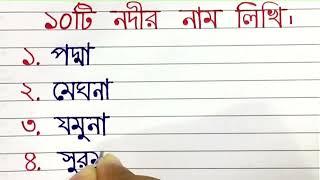 ১০টি নদীর নাম লিখি।
১. পদ্মা
২. মেঘনা
৩. যমুনা
৪. সুরম